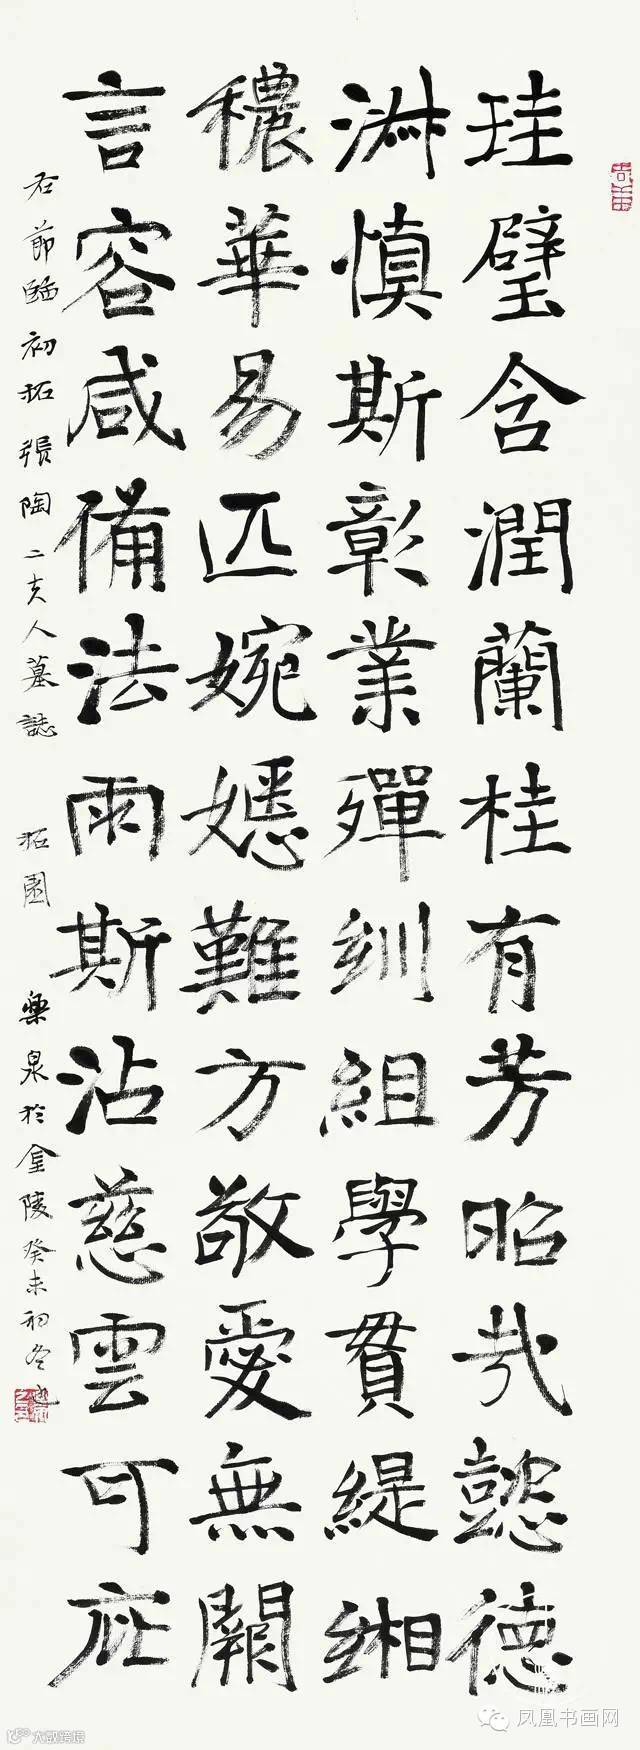 珪璧含潤蘭桂有芳昭哉懿德
淑慎斯彰業殫紃組學貫緹緗
穠華易匹婉嫕難方敬愛無闕
言容咸備法雨斯沾慈雲可庇
右節臨初拓張陶二夫人墓誌 拓園 樂泉於金陵癸未初冬也
凤凰书画网
大数跨境